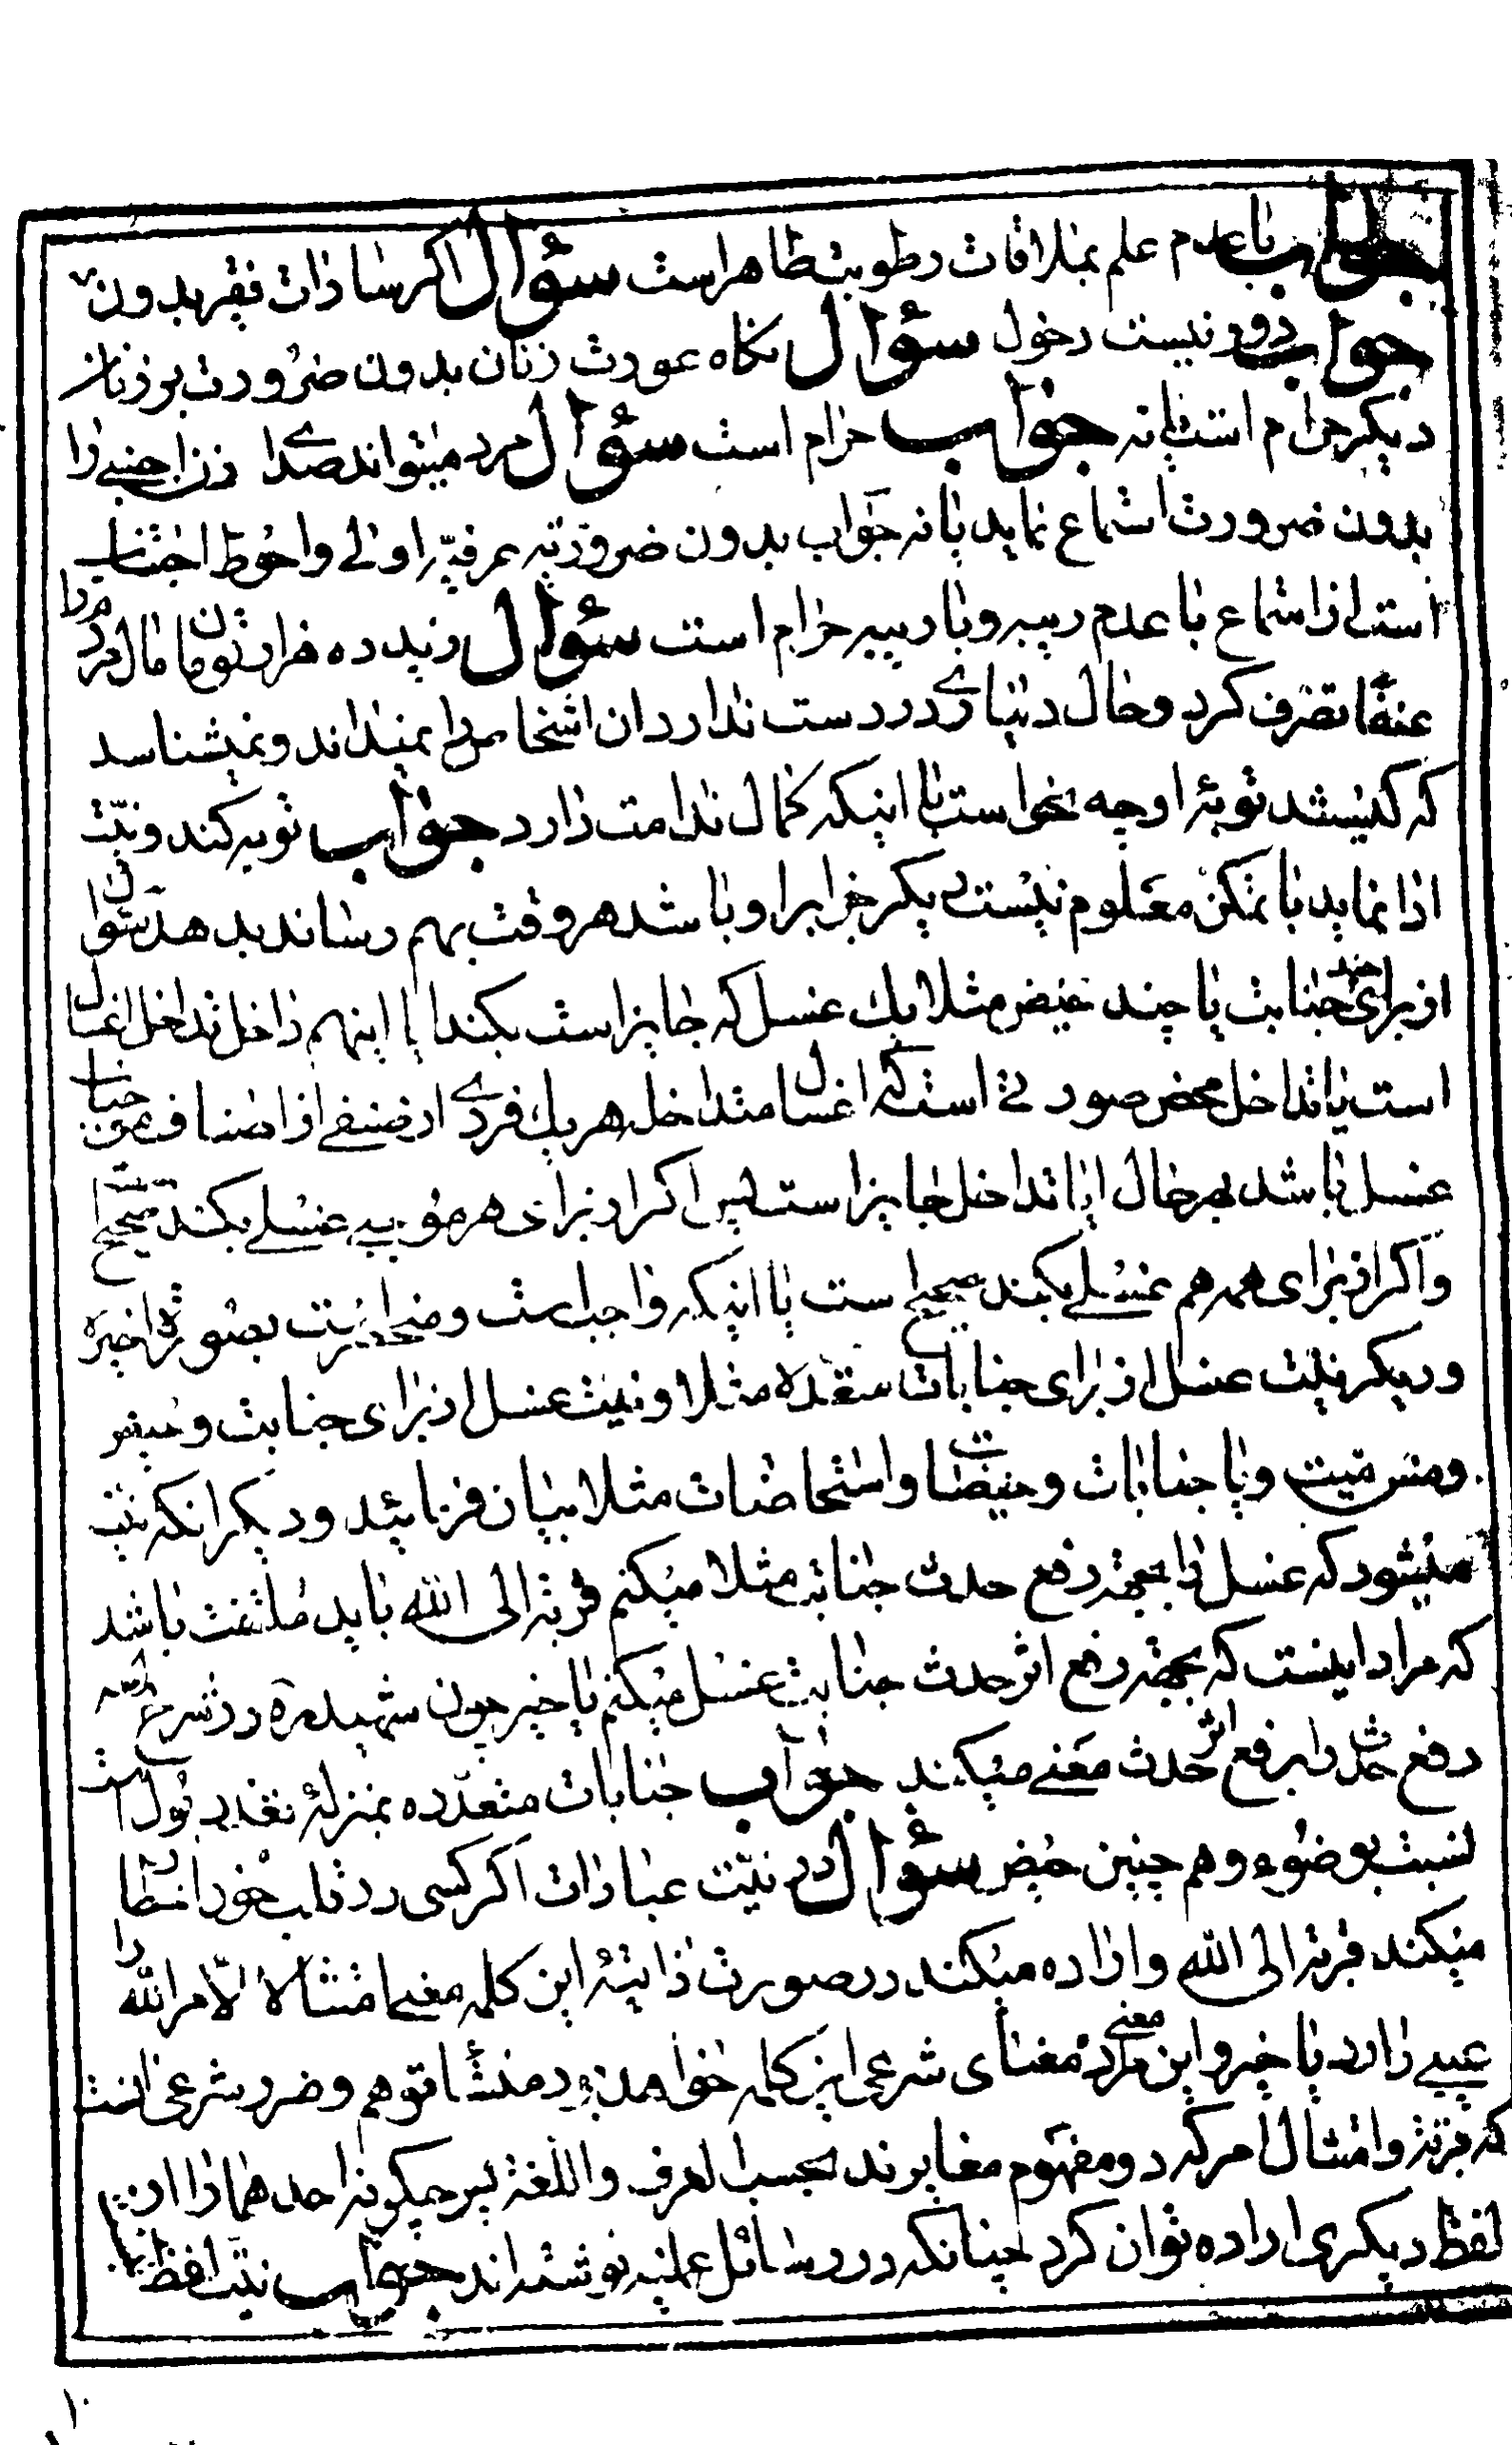 جواب با عدم علم بملاقات رطوبت طاهر است سؤال اکر سادات فقیر بدون
جواب دور نیست دخول سؤال نکاه عورت زنان بدون ضرورت بر زنان
دیکر حرام است یا نه جواب حرام است سؤال مرد میتواند صدای زن اجنبی را
بدون ضرورت استماع نماید یا نه جواب بدون ضرورتیه عرفیه اولی و احوط اجتناب
است از استماع با عدم ریبه و با ریبه حرام است سؤال زید ده هزار تومان مال مردم را
عنفا تصرف کرد و حال دنیاری در دست ندارد ان اشخاص را نمیداند و نمیشناسد
که کیستند توبهٔ او چه نحو است با اینکه کمال ندامت دارد جواب توبه کند و نیت
ادا نماید با تمکن معلوم نیست دیکر جزا برا و باشد هر وقت بهم رساند بدهد سؤال
از برای چند جنابت یا چند حیض مثلا یک غسل که جایز است بکند ایا اینهم داخل تداخل اغسال
است یا تداخل محض صورتی است که اغسال متداخله هر یک فردی از صنفی از اصناف
غسل باشد بهر حال ایا تداخل جایز است پس اکر از برای هر موجبی غسلی بکند صحیح است
و اکر از برای همه هم غسلی بکند صحیح است یا اینکه واجب است و منحصر است بصورة اخیره
و دیکر نیت غسل از برای جنابات متعدده مثلا و نیت غسل از برای جنابت و حیض
و مس میت و یا جنابات و حیضات و استحاضات مثلا بیان فرمائید و دیکر انکه نیت
میشود که غسل را بجهة رفع حدث جنابت مثلا میکنم قربة الی الله باید ملتفت باشد
که مراد اینست که بجهة رفع اثر حدث جنابت غسل میکنم یا خیر چون شهید ره در شرح لمعه
رفع حدث را برفع اثر حدث معنی میکند جواب جنابات متعدده بمنزلهٔ تعدد بول است
نسبت بوضوء و هم چنین حیض سؤال در نیت عبادات اکر کسی در قلب خود اخطار
میکند قربة الی الله و اراده میکند در صورت ذاتیهٔ این کلمه معنی امتثالا لامر الله را
عیبی دارد یا خیر و این معنی مراد معنای شرعی این کلمه خواهد بود منشأ توهم و ضرر شرعی انست
که قربة و امتثال امر که دو مفهوم مغایرند بحسب العرف و اللغة پس چکونه احدهما را از
لفظ دیکری اراده توان کرد چنانکه در رسائل عملیه نوشته اند جواب نیت لفظ
۱۰